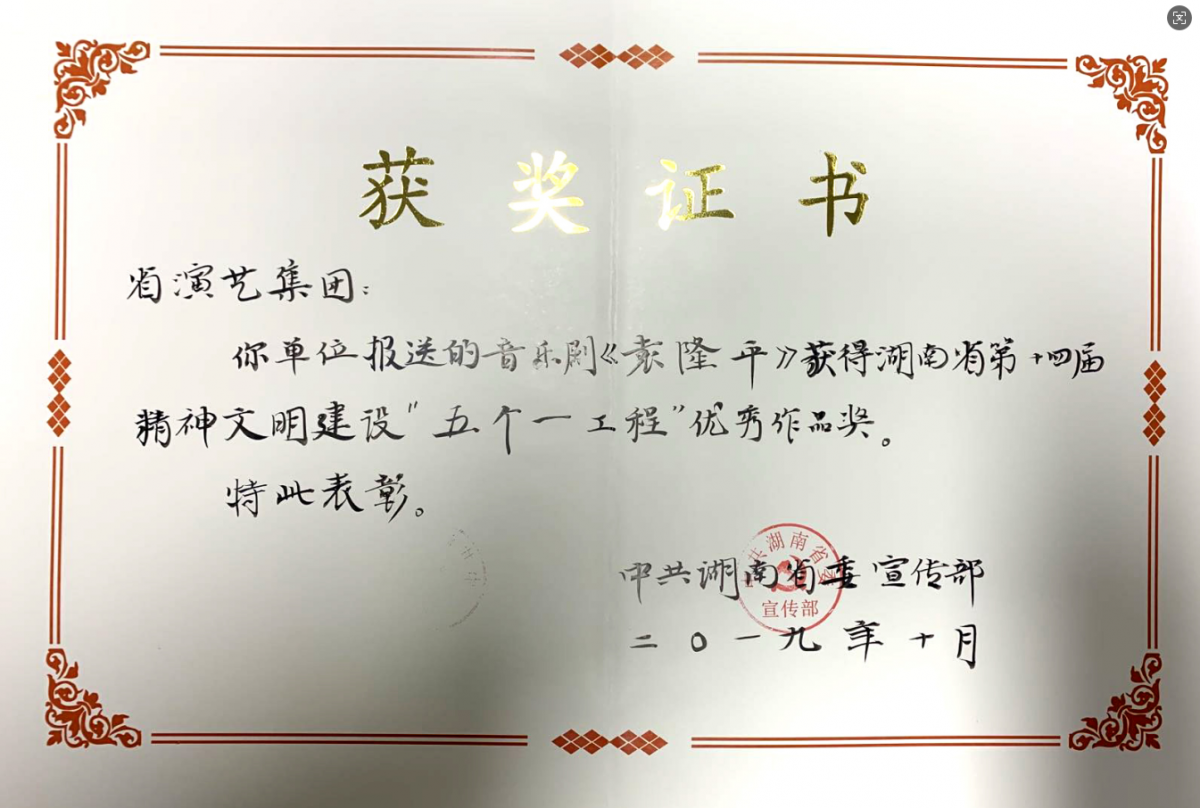 获奖证书
省演艺集团：
你单位报送的音乐剧《袁隆平》获得湖南省第十四届
精神文明建设“五个一工程”优秀作品奖。
特此表彰。
中共湖南省委宣传部
二〇一九年十月
中共湖南省委
宣传部